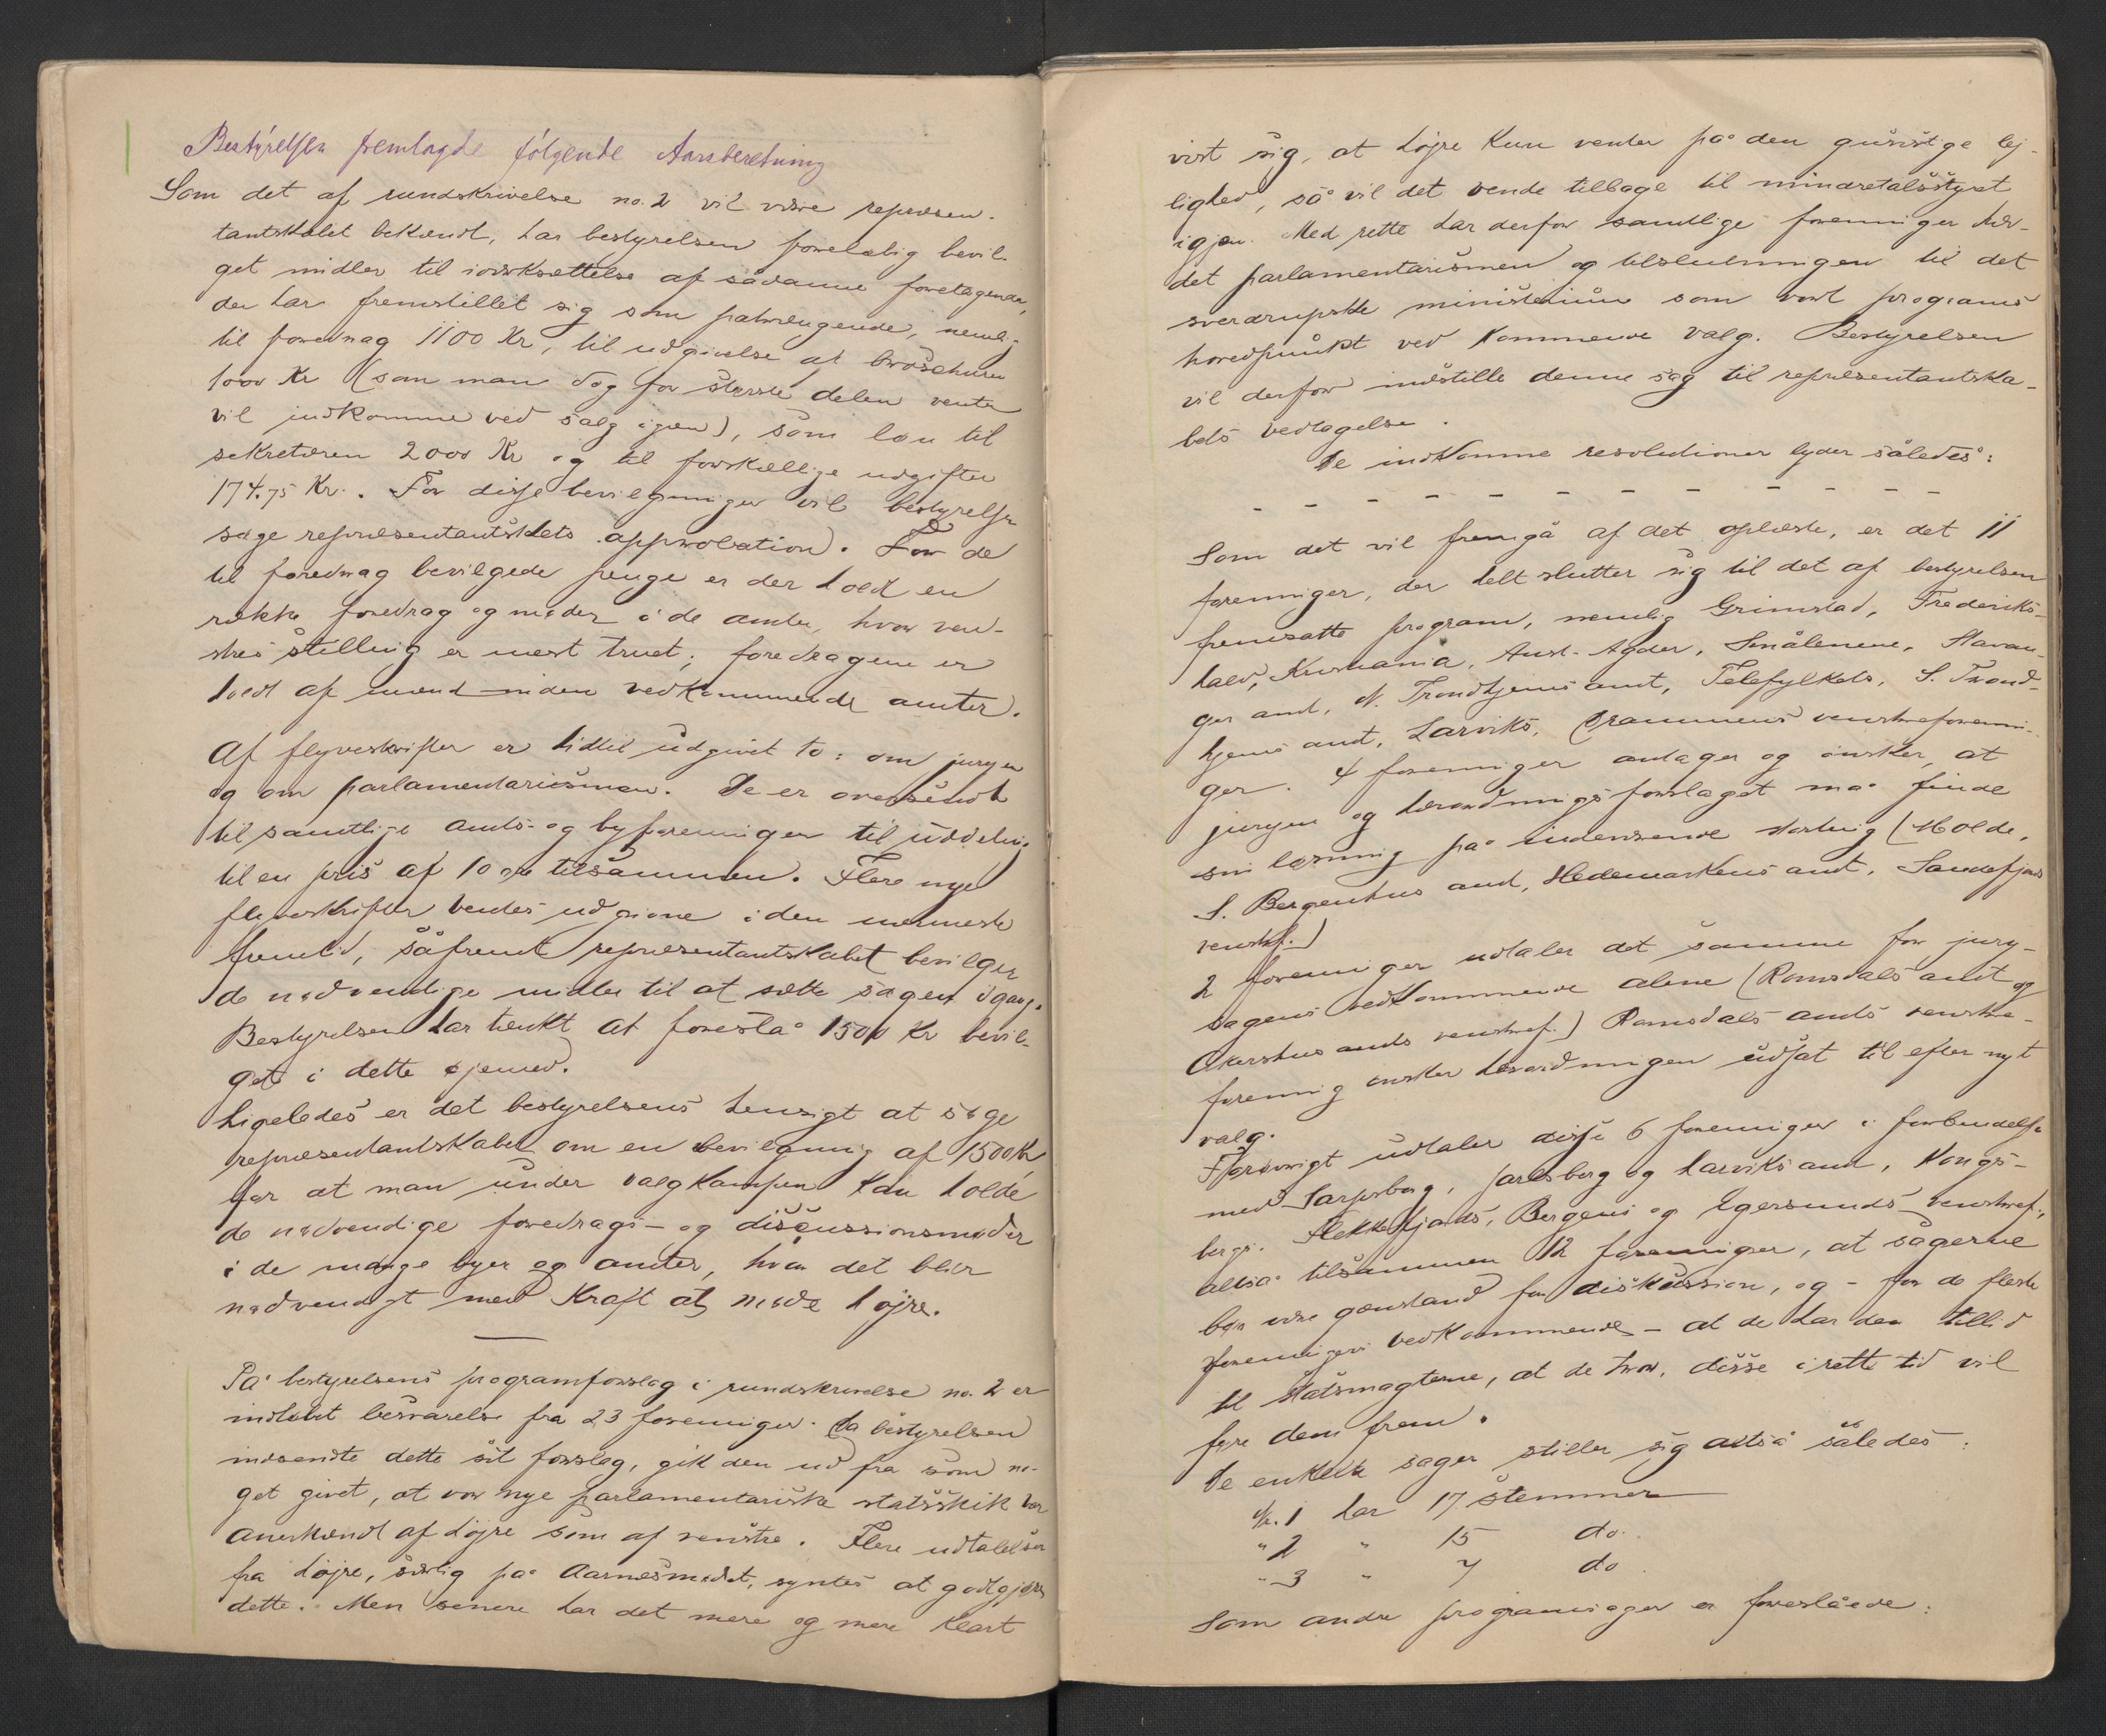 Bestyrelsen fremlagde følgende Aarsberetning
Som det af rundskrivelse no. 2 vil være repræsen-
tantskabet bekændt, har bestyrelsen foreløbig bevil-
get midler til iværksættelse af sådanne foretagender,
der har fremstillet sig som påtrængende, nemlig
til foredrag 1100 Kr, til udgivelse af broschurer
1000 Kr (som man dog for største delen venter
vil indkomme ved salg igjen), som løn til
sekretæren 2000 Kr og til forskællige udgifter
174.75 Kr. For disse bevilgninger vil bestyrelsen
søge repræsentantskabets approbation. For de
til foredrag bevilgede penge er der holdt en
række foredrag og møder i de amter, hvor ven-
stres stilling er mest truet; foredragene er
holdt af mænd inden vedkommende amter.
Af flyveskrifter er hidtil udgivet to: om juryen
og om parlamentarismen. De er oversendt
til samtlige amts- og byforeninger til uddeling
til en pris af 10 øre tilsammen. Flere nye
flyveskrifter ventes udgivne i den nærmeste
fremtid, såfremt repræsentantskabet bevilger
de nødvendige midler til at sætte sagen igang.
Bestyrelsen har tænkt at foreslå 1500 Kr bevil-
get i dette øjemed.
Ligeledes er det bestyrelsens hensigt at søge
repræsentantskabet om en bevilgning af 1500 Kr
for at man under valgkampen kan holde
de nødvendige foredrags- og discussionsmøder
i de mange byer og amter, hvor det blir
nødvendigt med Kraft at møde højre.
På bestyrelsens programforslag i rundskrivelse no. 2 er
indløbet besvarelse fra 23 foreninger. Da bestyrelsen
indsendte dette sit forslag, gik den ud fra som no-
get givet, at vor nye parlamentariske statsskik var
anerkændt af højre som af venstre. Flere udtalelser
fra højre, særlig på Aarnesmødet, syntes at godtgjøre
dette. Men senere har det mere og mere klart
vist sig, at højre kun venter på den gunstige lej-
lighed, så vil det vende tilbage til mindretalsstyret
igjen. Med rette har derfor samtlige foreninger hæv-
det parlamentarismen og tilslutningen til det
sverdrupske ministerium som vort programs
hovedpunkt ved kommende valg. Bestyrelsen
vil derfor indstille denne sag til repræsentantska-
bets vedtagelse.
De indkomne resolutioner lyder således:
- - - - - - - - - - - -
Som det vil fremgå af det oplæste, er det 11
foreninger, der helt slutter sig til det af bestyrelsen
fremsatte program, nemlig Grimstad, Frederiks-
hald, Kristiania, Aust-Agder, Smålenene, Stavan-
ger amt, N. Trondhjems amt, Telefylkets, S. Trond-
hjems amt, Larviks, Drammens venstreforenin-
ger. 4 foreninger antager og ønsker, at
juryen og hærordningsforslaget må finde
sin løsning på indeværende storting (Molde,
S. Bergenhus amt, Hedemarkens amt, Sandefjords
venstref.)
2 foreninger udtaler det samme for jury-
sagens vedkommende alene (Romsdals amt og
Akershus amts venstref.) Romsdals amts venstre-
forening ønsker hærordningen udsat til efter nyt
valg.
Forøvrigt udtaler disse 6 foreninger i forbindelse
med Sarpsborg, Jarlsberg og Larviks amt, Kongs-
bergs, Flekkefjords, Bergens og Egersunds venstref.,
altså tilsammen 12 foreninger, at sagerne
bør være gænstand for diskussion, og - for de fleste
foreningers vedkommende - at de har den tillid
til statsmagterne, at de tror, disse i rette tid vil
føre dem frem.
De enkelte sager stiller sig altså således:
No. 1 har 17 stemmer
" 2 " 15 do.
" 3 " 7 do
Som andre programsager er foreslåede: